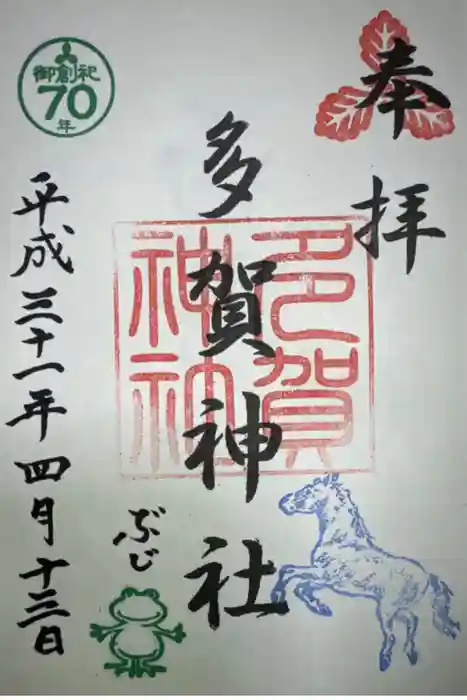 奉拝
多賀神社
多賀
神社
御創祀
70
年
平成三十一年四月十三日
ぶじ